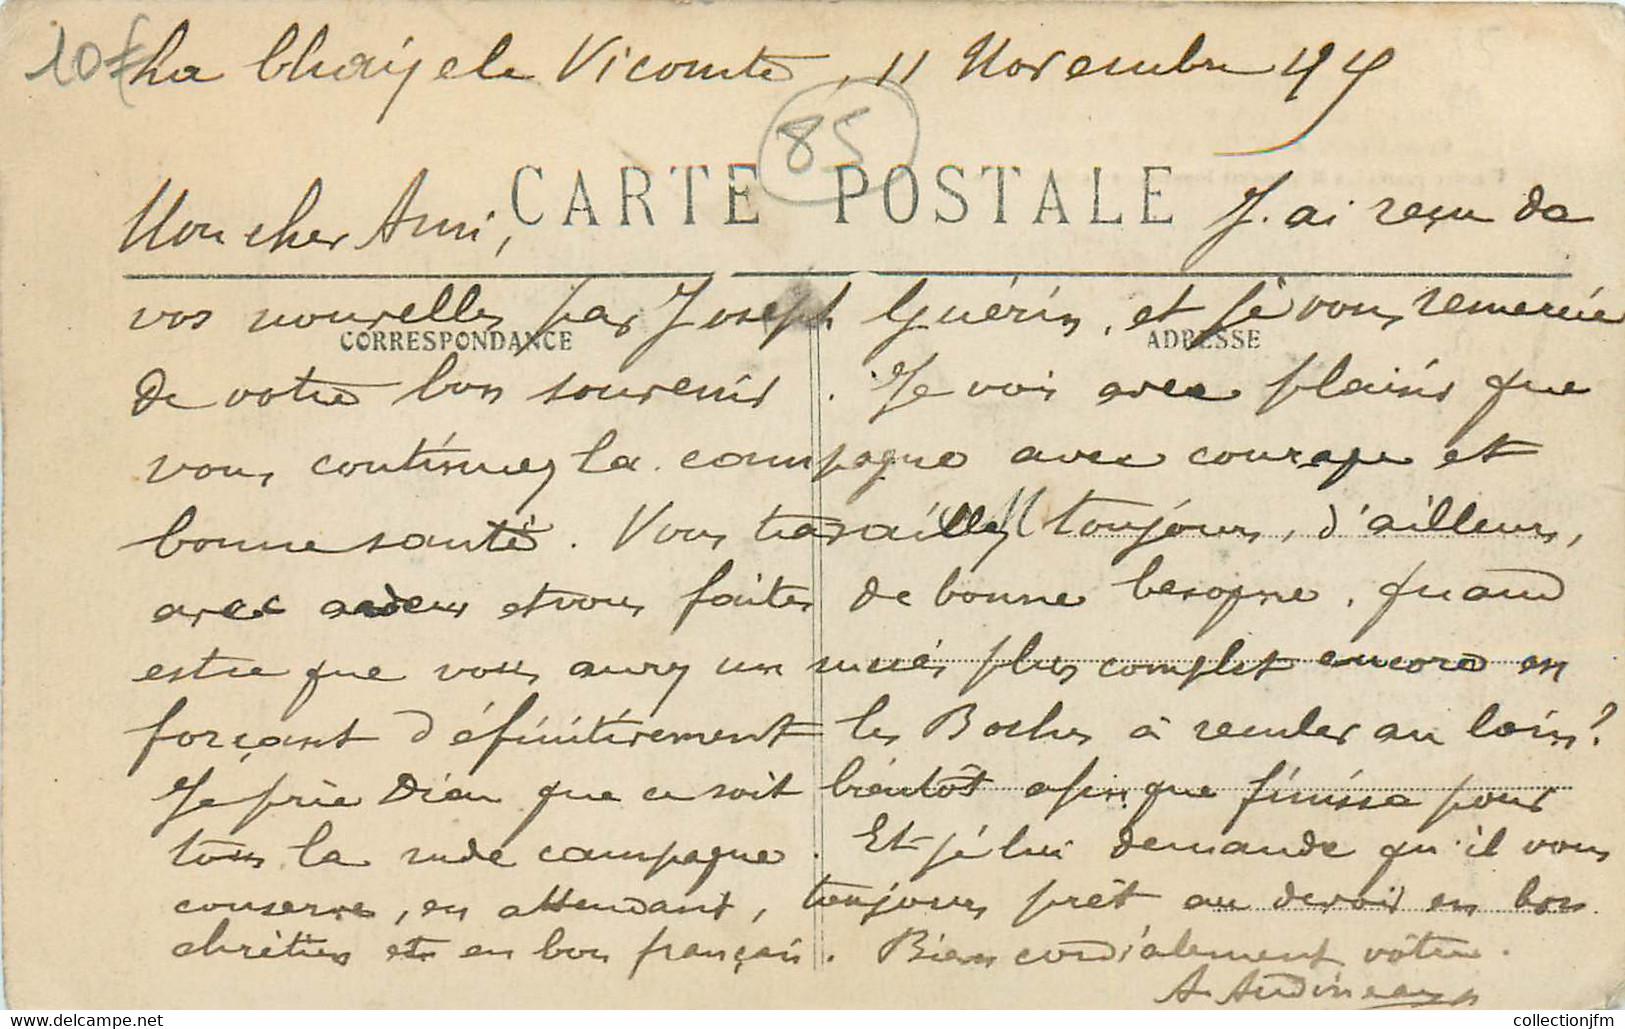 10€ La Chaize le Vicomte, 11 Novembre 1915
85
CARTE POSTALE
Mon cher Ami, J'ai reçu de
vos nouvelles par Joseph Guérin, et je vous remercie
CORRESPONDANCE ADRESSE
de votre bon souvenir. Je vois avec plaisir que
vous continuez la campagne avec courage et
bonne santé. Vous travaillez toujours, d'ailleurs,
avec ardeur et vous faites de bonne besogne. Quand
est ce que vous aurez un succès plus complet encore en
forçant définitivement les Boches à reculer au loin?
Je prie Dieu que ce soit bientôt afin que finisse pour
tous la rude campagne. Et je lui demande qu'il vous
conserve, en attendant, toujours prêt au devoir en bon
chrétien et en bon français. Bien cordialement vôtre.
A. Audineau
collectionjfm